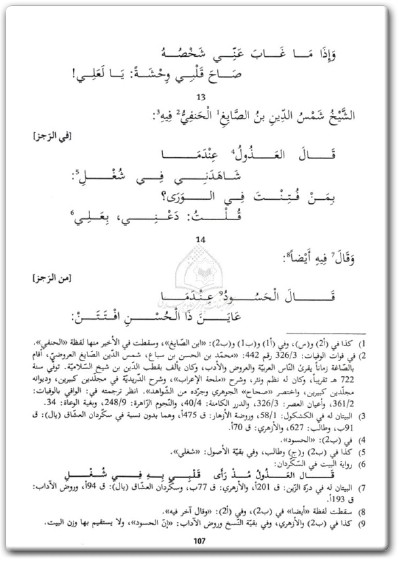 وَإِذَا مَـا غَـابَ عَنِّي شَخْصُهُ
صَاحَ قَلْبِي وِحْشَةً: يَا لَعَلِي!
13
الشَّيْخُ شَمْسُ الدِّينِ بنُ الصَّايِغِ¹ الْحَنَفِيُّ² فِيهِ³:
[في الرّجز]
قَـــالَ الـعَـذُولُ⁴ عِنْدَمَـــا
شَاهَدَنِــي فِــي شُغُــلِ⁵:
بِمَنْ فُتِنْتَ فِـي الـوَرَى؟
قُـلْـتُ: دَعْنِـي، بِعَلِـي⁶
14
وَقَالَ⁷ فِيهِ أَيْضاً⁸:
[من الرّجز]
قَـــالَ الْحَسُـودُ⁹ عِنْدَمَـا
عَايَـنَ ذَا الْحُسْـنِ افْتَتَـنْ:
1) كذا في (أ2) و(س)، وفي (أ1) و(ب1) و(ب2): «ابن الصّايغ»، وسقطت في الأخير منها لفظة «الحنفي».
2) في فوات الوفيات: 326/3 رقم 442: «محمّد بن الحسن بن سباع، شمس الدّين الصّايغ العروضيّ، أقام
بالصّاغة زماناً يقرئ النّاس العربيّة والعروض والأدب، وكان يألف بقطب الدّين بن شيخ السّلاميّة. توفّي سنة
722 هـ تقريباً، وكان له نظم ونثر، وشرح «ملحة الإعراب»، وشرح الدّريديّة في مجلّدين كبيرين، وديوانه
مجلّدين كبيرين، واختصر «صحاح» الجوهري وجرّده من الشّواهد.» انظر ترجمته في: الوافي بالوفيات:
361/2، وأعيان العصر: 326/3، والدرر الكامنة: 40/4، والنّجوم الزّاهرة: 248/9، وبغية الوعاة: 34.
3) البيتان له في الكشكول: 58/1، وروضة الأزهار: ق 475أ، وهما بدون نسبة في سكّردان العشّاق (يال): ق
91ب، وطالب: 627، والأزهري: ق 70أ.
4) في (ب2): «الحسود».
5) كذا في (ب2) و(ج) وطالب، وفي بقيّة الأصول: «شغلي».
6) رواية البيت في السّكّردان:
قَـــالَ الـعَـــذُولُ مُـذْ رَأَى قَـلْبِـي بِـهِ فِـي شُغْـلِ
7) البيتان له في درّة الزّين: ق 201أ، والأزهري: ق 77ب، وسكّردان العشّاق (يال): ق 94أ، وروض الآداب:
ق 193أ.
8) سقطت لفظة «أيضا» في (ب2)، وفي (أ2): «وقال آخر فيه».
9) كذا في (ب2) والأزهري، وفي بقيّة النّسخ وروض الآداب: «إنّ الحسود»، ولا يستقيم بها وزن البيت.
107